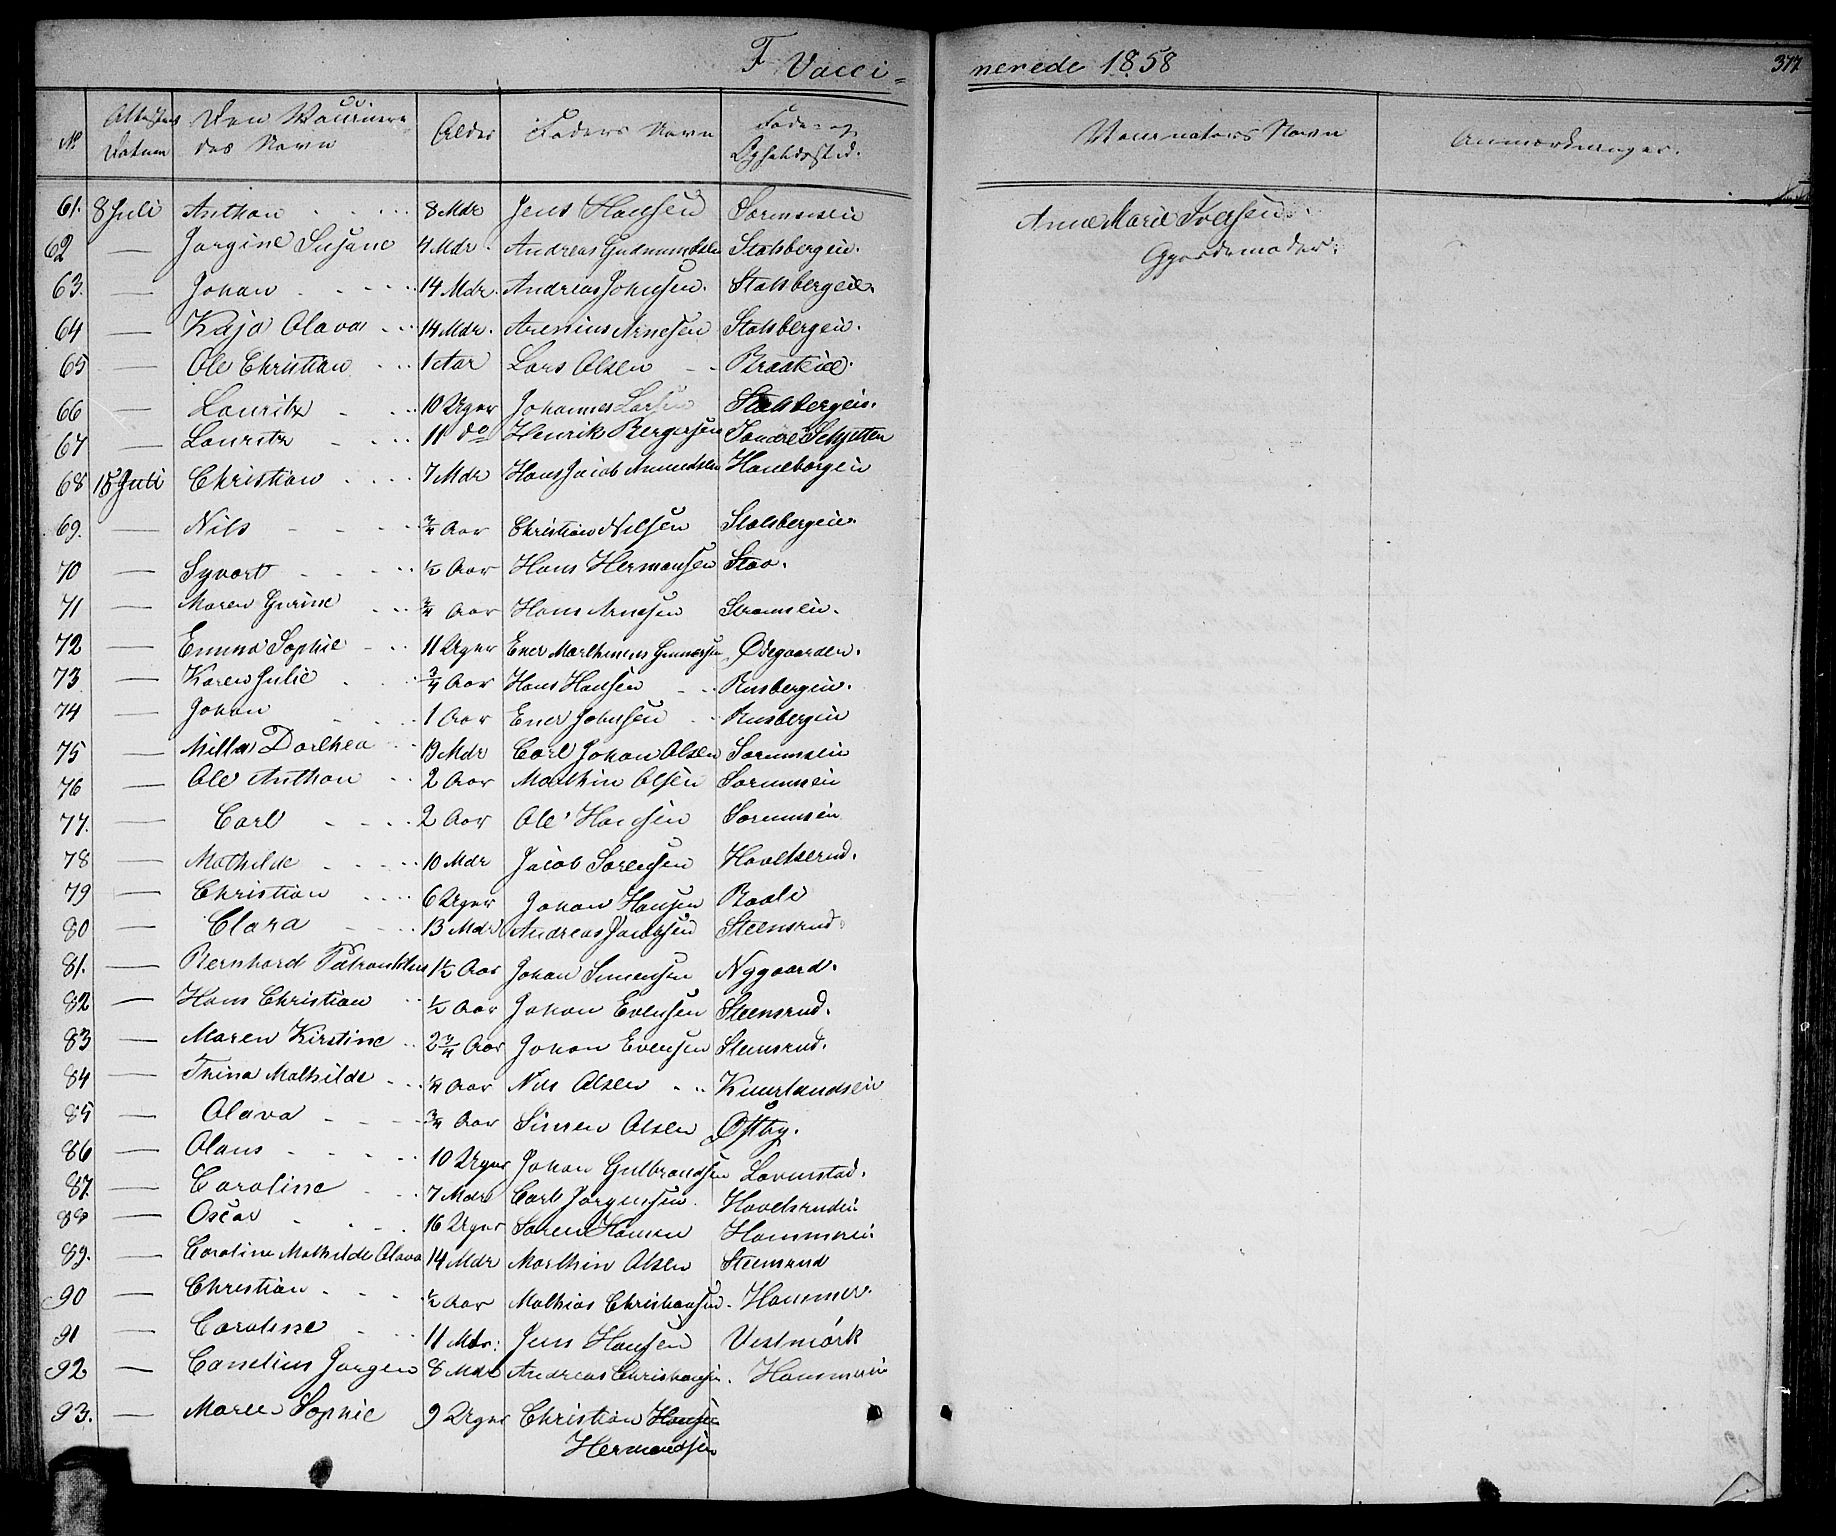 F Vacci-
nerede 1858
377
No
Attestens Datum
Den Vaccinere-des Navn
Alder
Faders Navn
Føde- og Opholdssted.
Vaccinators Navn
Anmærkninger.
61. 8 Juli Anthon 8 Mdr Jens Hansen Sørumseie Anne Marie Iversen
62 — Jørgine Susane 4 Mdr. Andreas Gudmundsen Stalsbergeie. Gjordemoder.
63. — Johan 14 Mdr. Andreas Johnsen. Stalsbergeie.
64 — Kaja Olava 14 Mdr. Arenius Arnesen Stalsbergeie.
65 — Ole Christian 1 Aar Lars Olsen Braateie.
66 — Lauritz 10 Uger Johannes Larsen Stalsbergeie.
67 — Lauritz 11 do Henrik Bergersen Søndre Schjetten
68 15 Juli Christian 7 Mdr Hans Jacob Amundsen Haneborgeie
69. — Nils 3/4 Aar Christian Nilsen Stalsbergeie.
70 — Syvert 1/2 Aar Hans Hermansen Stav.
71 — Maren Gurine 3/4 Aar Hans Arnesen Strømseie.
72 — Emma Sophie 11 Uger Ener Marthinius Gunnersen Ødegaarden.
73 — Karen Julie 3/4 Aar Hans Hansen Rusbergeie.
74 — Johan 1 Aar Ener Johnsen Rusbergeie
75 — Milla Dorthea 19 Mdr Carl Johan Olsen Sørumseie
76 — Ole Anthon 2 Aar Mathin Olsen Sørumseie
77. — Carl 2 Aar Ole Hansen Sørumseie
78 — Mathilde 10 Mdr Jacob Sørensen Hovelserud.
79 — Christian 6 Uger Johan Hansen Raale
80 — Clara 13 Mdr Andreas Jacobsen Steensrud
81. — Bernhard 1 1/2 Aar Johan Simensen Nygaard.
82 — Hans Christian 1/2 Aar Johan Evensen Steensrud.
83 — Maren Kirstine 2 3/4 Aar Johan Evensen Steensrud.
84 — Trina Mathilde 1/4 Aar Nils Olsen Knurlandseie
85 — Olava 3/4 Aar Simen Olsen Østby.
86 — Olaus 10 Uger Johan Gulbrandsen Lørenstad.
87. — Caroline 7 Mdr Carl Jørgensen. Hovelsrudeie
88 — Oscar 16 Uger Søren Hansen Hammereie
89. — Caroline Mathilde Olava 14 Mdr Marthin Olsen Steensrud
90 — Christian 1/2 Aar Mathias Christiansen. Hammer.
91 — Caroline 11 Mdr: Jens Hansen Vestmørk
92 — Cornelius Jørgen 8 Mdr Andreas Christiansen. Hammereie
93. — Maren Sophie 9 Uger Christian Hansen
Hermandsen